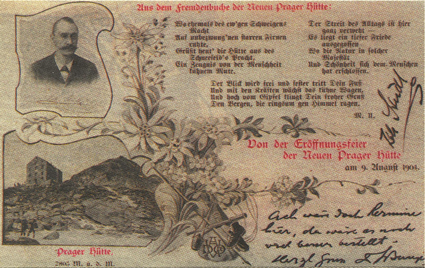 Aus dem Fremdenbuche der Neuen Prager Hütte:
Wo ehemals des ew'gen Schweigens
Macht
Auf unbezwung'nen starren Firnen
ruhte,
Grüsst heut' die Hütte aus des
Schneefeld's Pracht,
Ein Zeugnis von der Menschheit
kühnem Mute.
Der Streit des Alltags ist hier
ganz verweht
Es liegt ein tiefer Friede
ausgegossen
Wo die Natur in solcher
Majestät
Und Schönheit sich dem Menschen
hat erschlossen.
Der Blick wird frei und fester tritt Dein Fuß
Und mit den Kräften wächst das kühne Wagen,
Und hoch vom Gipfel klingt Dein froher Gruß
Den Bergen, die ringsum gen Himmel ragen.
M. U.
Von der Eröffnungsfeier
der Neuen Prager Hütte
am 9. August 1904.
Prager Hütte
2805 M. a. d. M.
Ach wär doch Hermine
hier, da wäre es noch